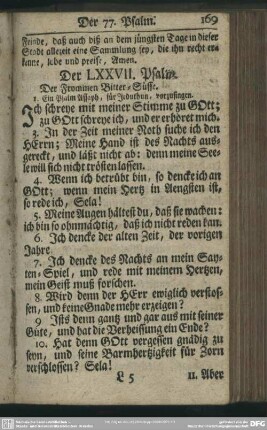 Der 77. Psalm. 169
Feinde, daß auch biß an dem jüngsten Tage in dieser
Stadt allezeit eine Sammlung sey, die ihn recht er-
kante, lebe und preise, Amen.
Der LXXVII. Psalm.
Der Frommen Bitter-Süsse.
1. Ein Psalm Assaph, für Jeduthun, vorzusingen.
Ich schreye mit meiner Stimme zu GOtt;
zu GOtt schreye ich, und er erhöret mich.
3. In der Zeit meiner Noth suche ich den
HErrn; Meine Hand ist des Nachts ausge-
reckt, und läßt nicht ab: denn meine See-
le will sich nicht trösten lassen.
4. Wenn ich betrübt bin, so dencke ich an
GOtt; wenn mein Hertz in Aengsten ist,
so rede ich, Sela!
5. Meine Augen hältest du, daß sie wachen:
ich bin so ohnmächtig, daß ich nicht reden kan.
6. Ich dencke der alten Zeit, der vorigen
Jahre.
7. Ich dencke des Nachts an mein Say-
ten-Spiel, und rede mit meinem Hertzen,
mein Geist muß forschen.
8. Wird denn der HErr ewiglich verstos-
sen, und keine Gnade mehr erzeigen?
9 Ists denn gantz und gar aus mit seiner
Güte, und hat die Verheissung ein Ende?
10. Hat denn GOtt vergessen gnädig zu
seyn, und seine Barmhertzigkeit für Zorn
verschlossen? Sela!
L 5 11. Aber